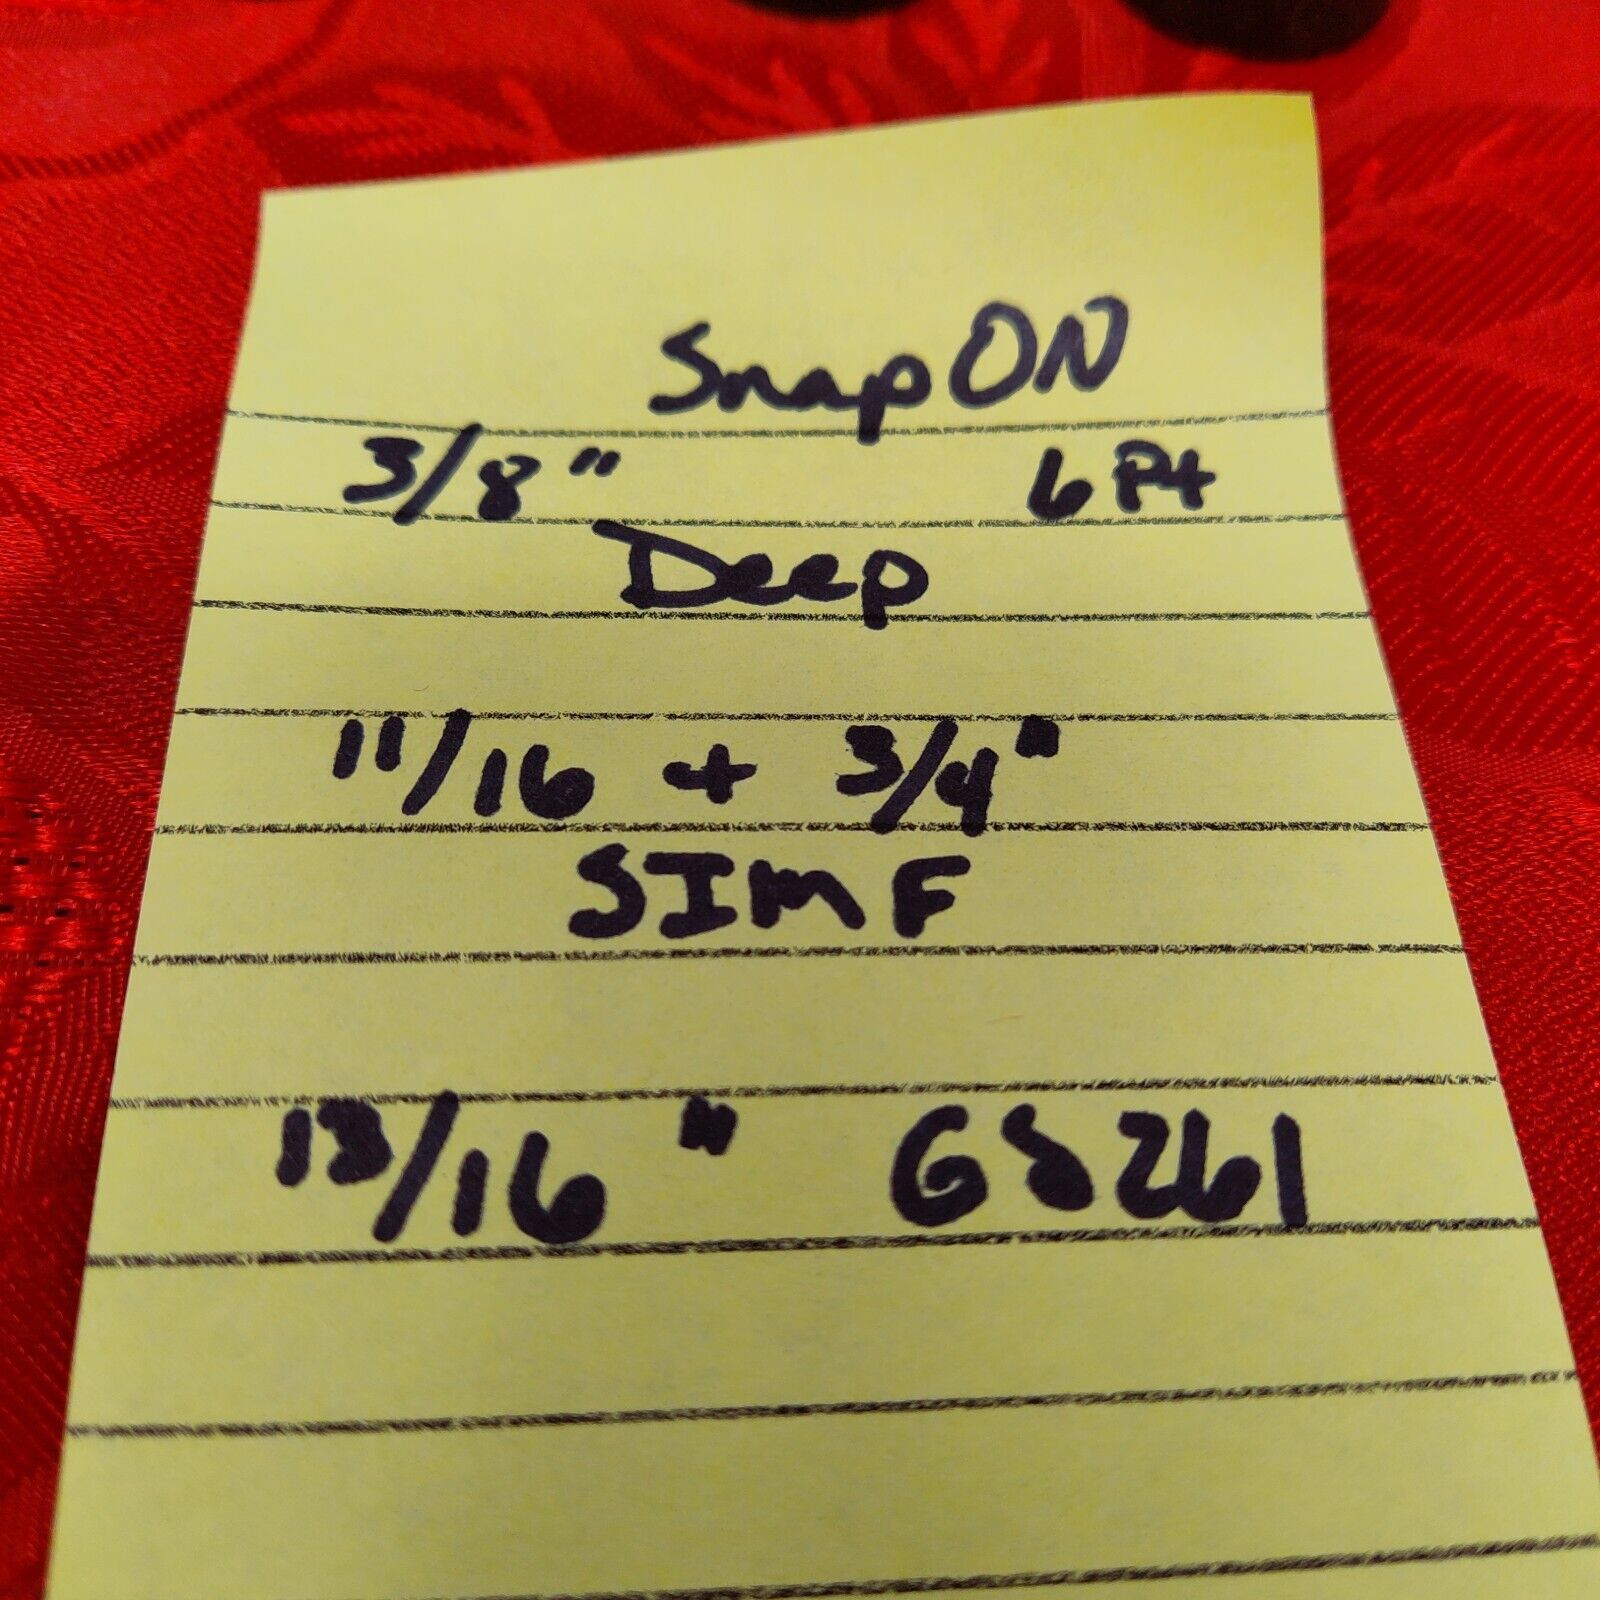 Snap ON
3/8" 6 Pt
Deep
11/16 + 3/4"
SIMF
13/16" GS261